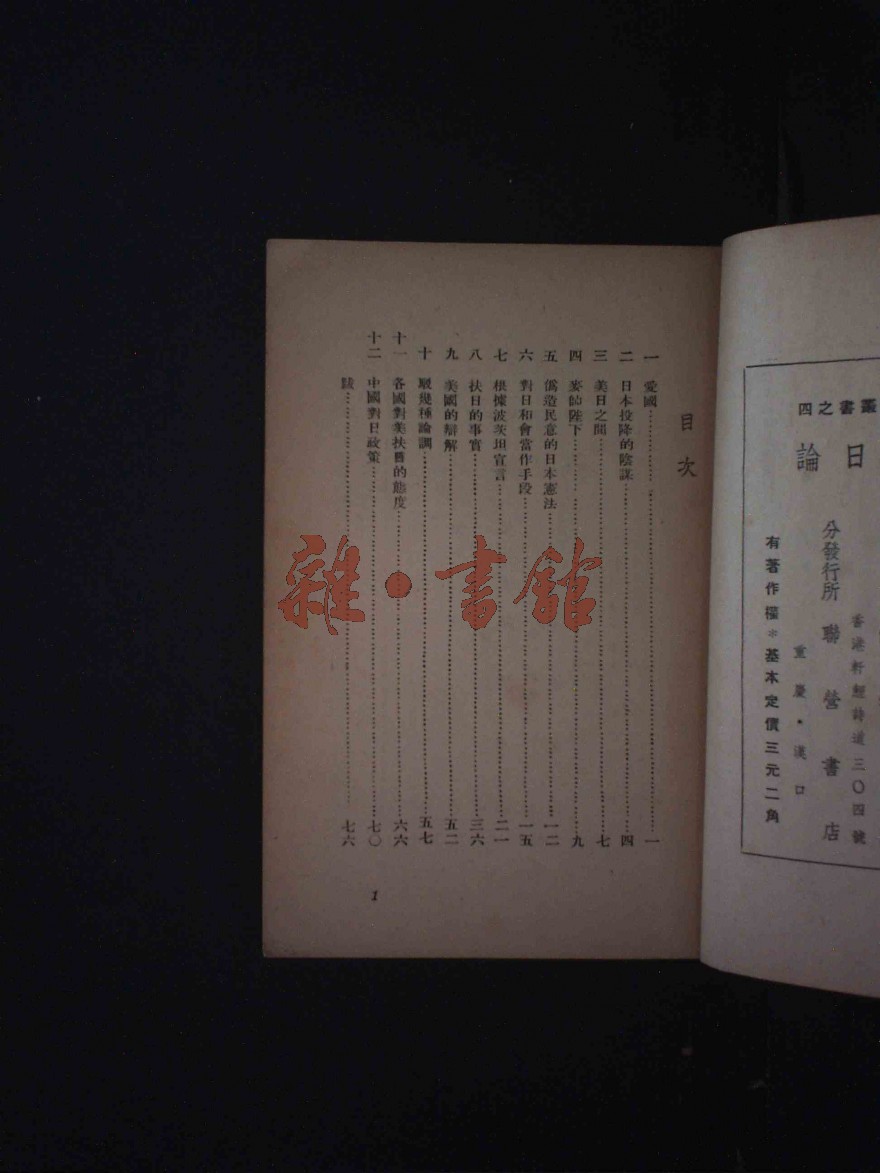 叢書之四
日論
分發行所 聯營書店
香港軒鯉詩道三〇四號
重慶·漢口
有著作權＊基本定價三元二角
目次
一 愛國……一
二 日本投降的陰謀……四
三 美日之間……七
四 麥帥陛下……九
五 僞造民意的日本憲法……一二
六 對日和會當作手段……一五
七 根據波茨坦宣言……二一
八 扶日的事實……三六
九 美國的辯解……五二
十 駁幾種論調……五七
十一 各國對美扶日的態度……六六
十二 中國對日政策……七〇
跋……七六
1
雜·書館